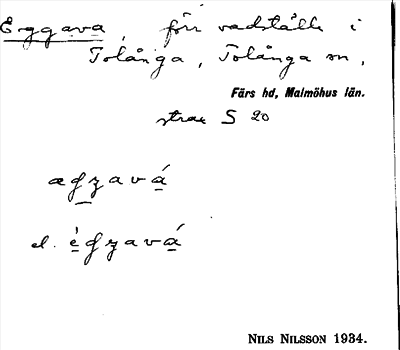 Eggava, förr vadställe i
Tolånga, Tolånga sn,
Färs hd, Malmöhus län.
strax S 20
el.
NILS NILSSON 1934.